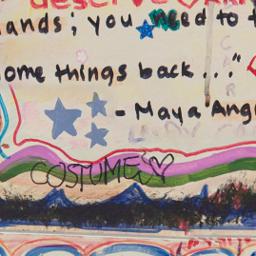 deserve
ands; you need to
ome things back..."
- Maya Ang
COSTUMES